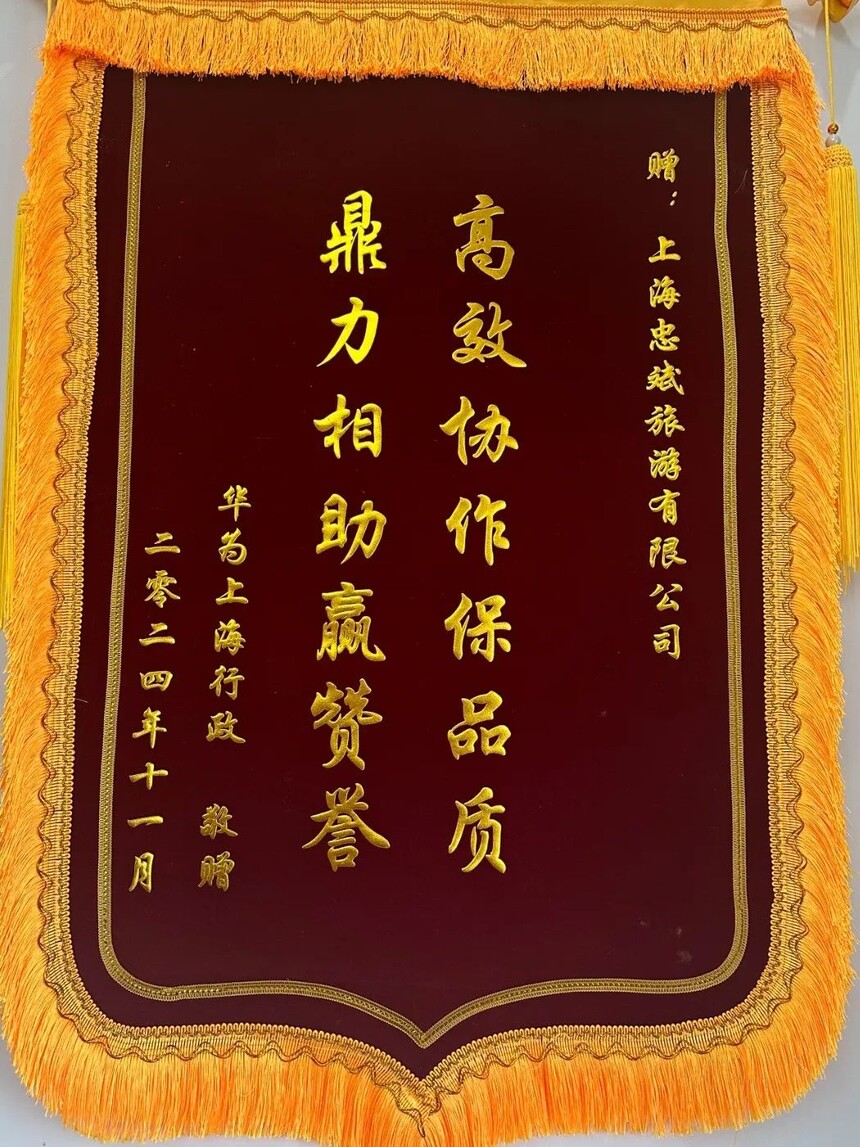 赠：上海忠斌旅游有限公司
高效协作保品质
鼎力相助赢赞誉
华为上海行政 敬赠
二零二四年十一月